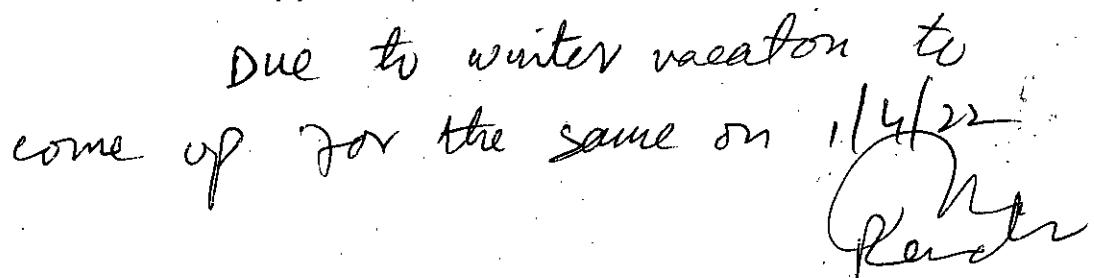 Due to winter vacaton to
come up for the same on 1/4/22